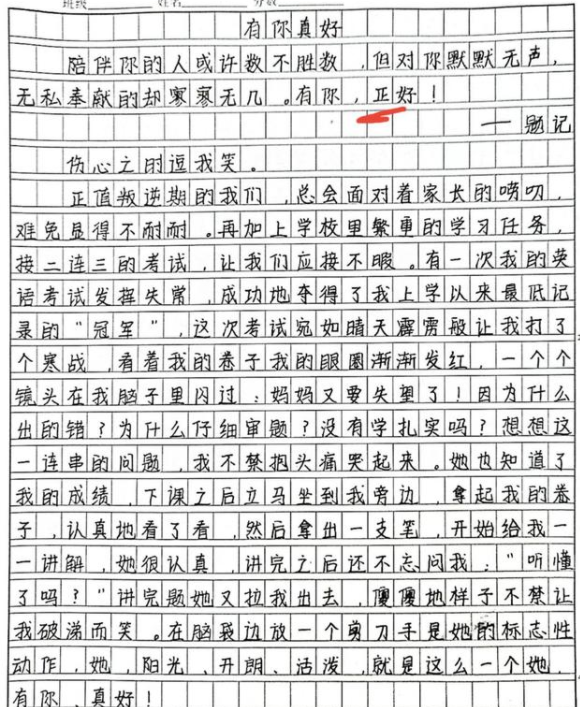 班级 姓名 分数
有你真好
陪伴你的人或许数不胜数,但对你默默无声,
无私奉献的却寥寥无几。有你,正好!
——题记
伤心之时逗我笑。
正值叛逆期的我们,总会面对着家长的唠叨,
难免显得不耐耐。再加上学校里繁重的学习任务,
接二连三的考试,让我们应接不暇。有一次我的英
语考试发挥失常,成功地夺得了我上学以来最低记
录的"冠军",这次考试宛如晴天霹雳般让我打了
个寒战,看着我的卷子我的眼圈渐渐发红,一个个
镜头在我脑子里闪过:妈妈又要失望了!因为什么
出的错?为什么仔细审题?没有学扎实吗?想想这
一连串的问题,我不禁抱头痛哭起来。她也知道了
我的成绩,下课之后立马坐到我旁边,拿起我的卷
子,认真地看了看,然后拿出一支笔,开始给我一
一讲解,她很认真,讲完之后还不忘问我:"听懂
了吗?"讲完题她又拉我出去,傻傻地样子不禁让
我破涕而笑。在脑袋边放一个剪刀手是她的标志性
动作,她,阳光、开朗、活泼,就是这么一个她,
有你,真好!